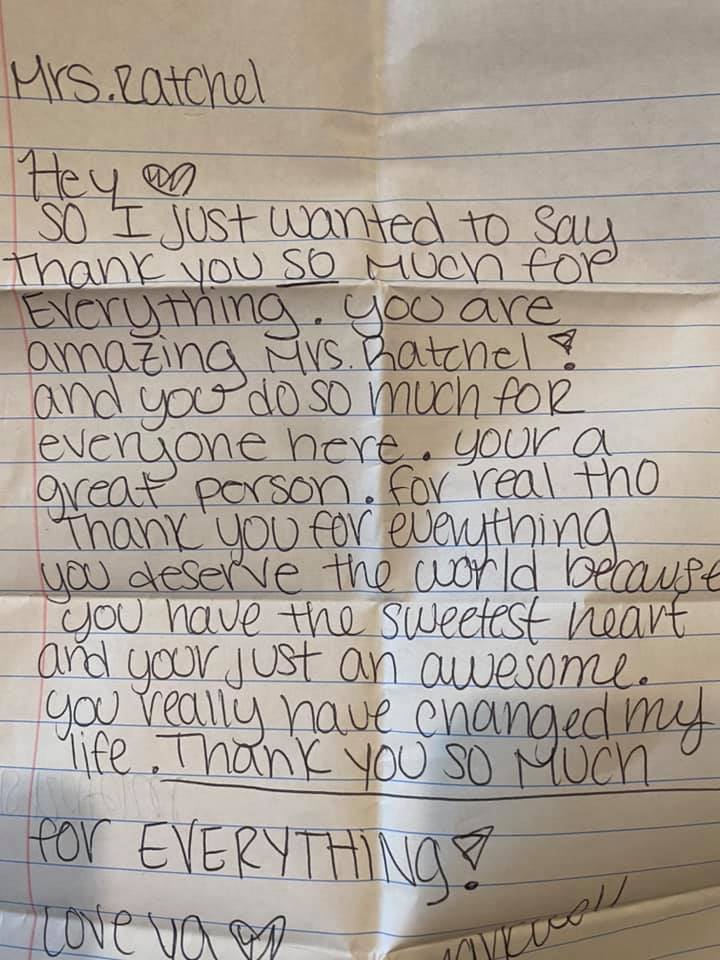 Mrs. Ratchel
Hey ♡
SO I just wanted to say
Thank you so much for
Everything. you are
amazing Mrs. Ratchel!
and you do so much for
everyone here. your a
great person. for real tho
Thank you for eveything
you deserve the world because
you have the sweetest heart
and your just an awesome.
you really have changed my
life. Thank you so much
for EVERYTHING!
Love ya ♡